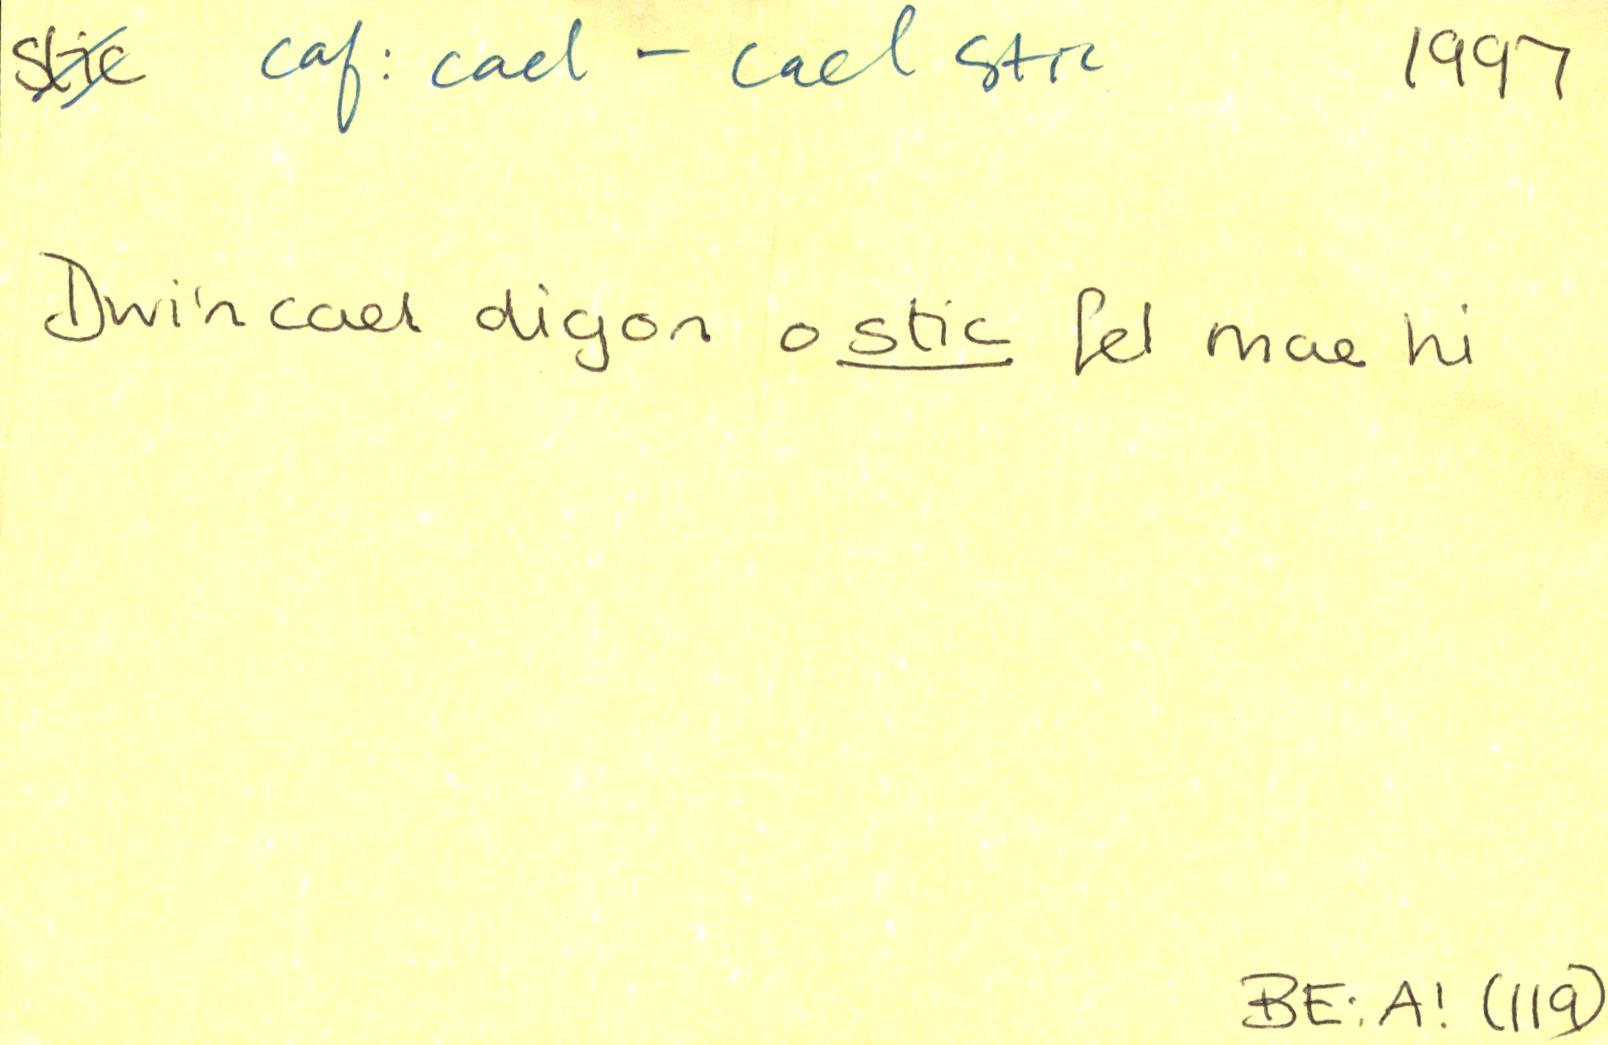 stic caf: cael – cael stic 1997
Dwi'n cael digon o stic fel mae hi
BE: A! (119)